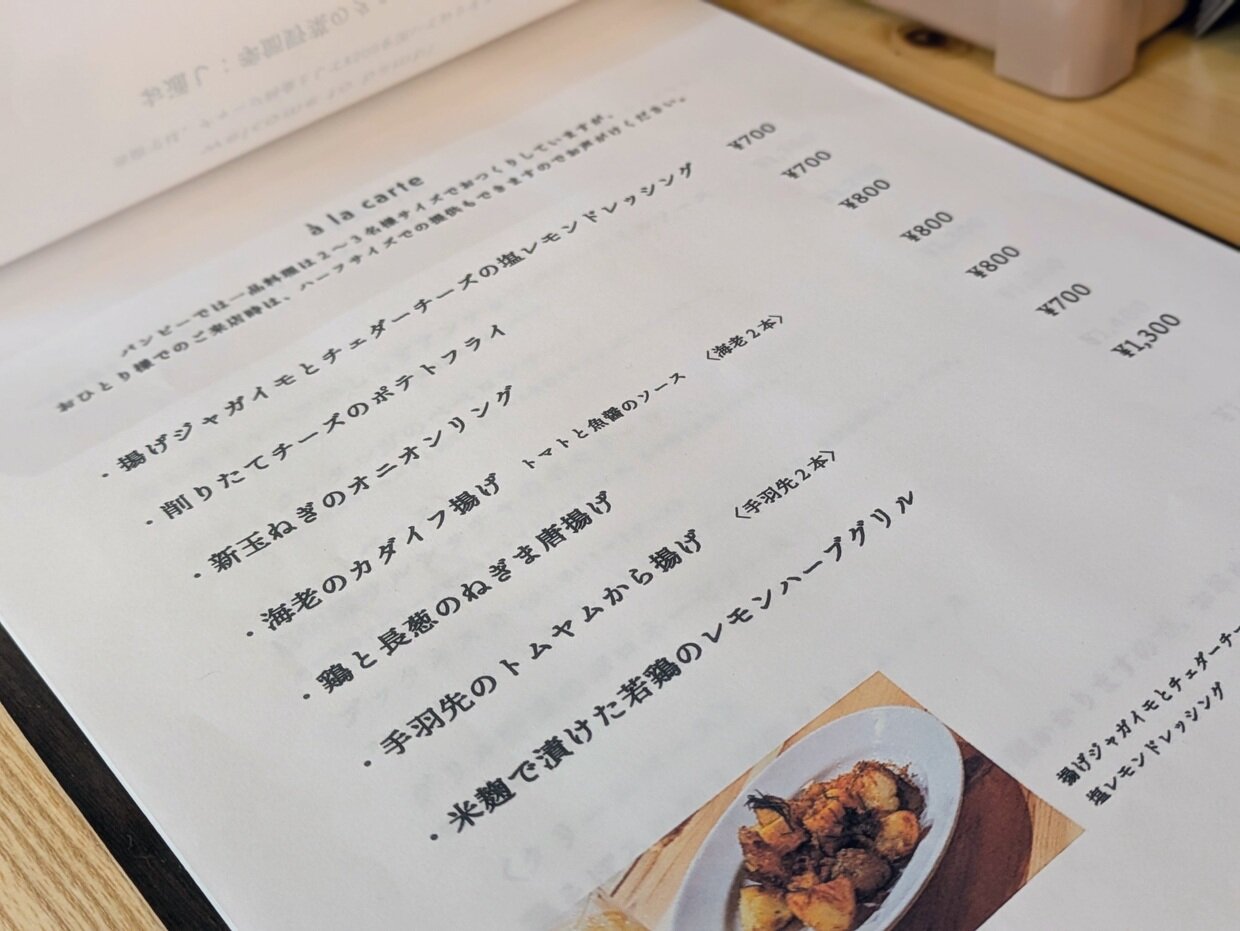 à la carte
バンビーでは一品料理は２〜３名様サイズでおつくりしていますが、
おひとり様でのご来店時は、ハーフサイズでの提供もできますのでお声がけください。
・揚げジャガイモとチェダーチーズの塩レモンドレッシング ¥700
・削りたてチーズのポテトフライ ¥700
・新玉ねぎのオニオンリング ¥800
・海老のカダイフ揚げ トマトと魚醤のソース 〈海老２本〉 ¥800
・鶏と長葱のねぎま唐揚げ ¥800
・手羽先のトムヤムから揚げ 〈手羽先２本〉 ¥700
・米麹で漬けた若鶏のレモンハーブグリル ¥1,300
揚げジャガイモとチェダーチー
塩レモンドレッシング